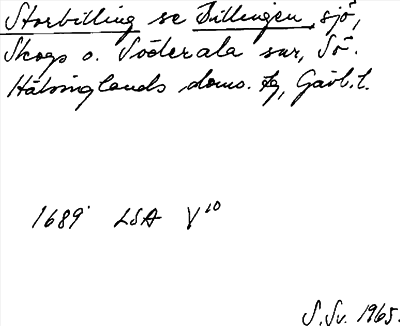 Storbilling se Billingen, sjö,
Skogs o. Söderala snr, Sö.
Hälsinglands doms. tg, Gävl. l.
1689 LSA V10
S. Sv. 1965.